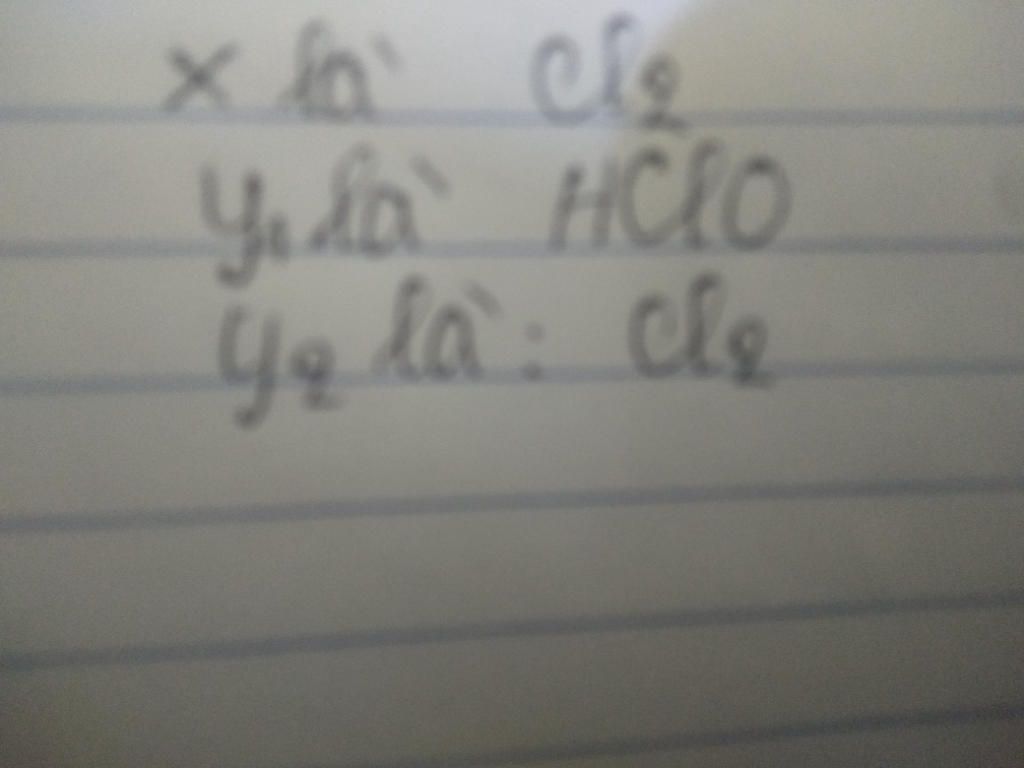 X là Cl2
Y1 là HClO
Y2 là: Cl2